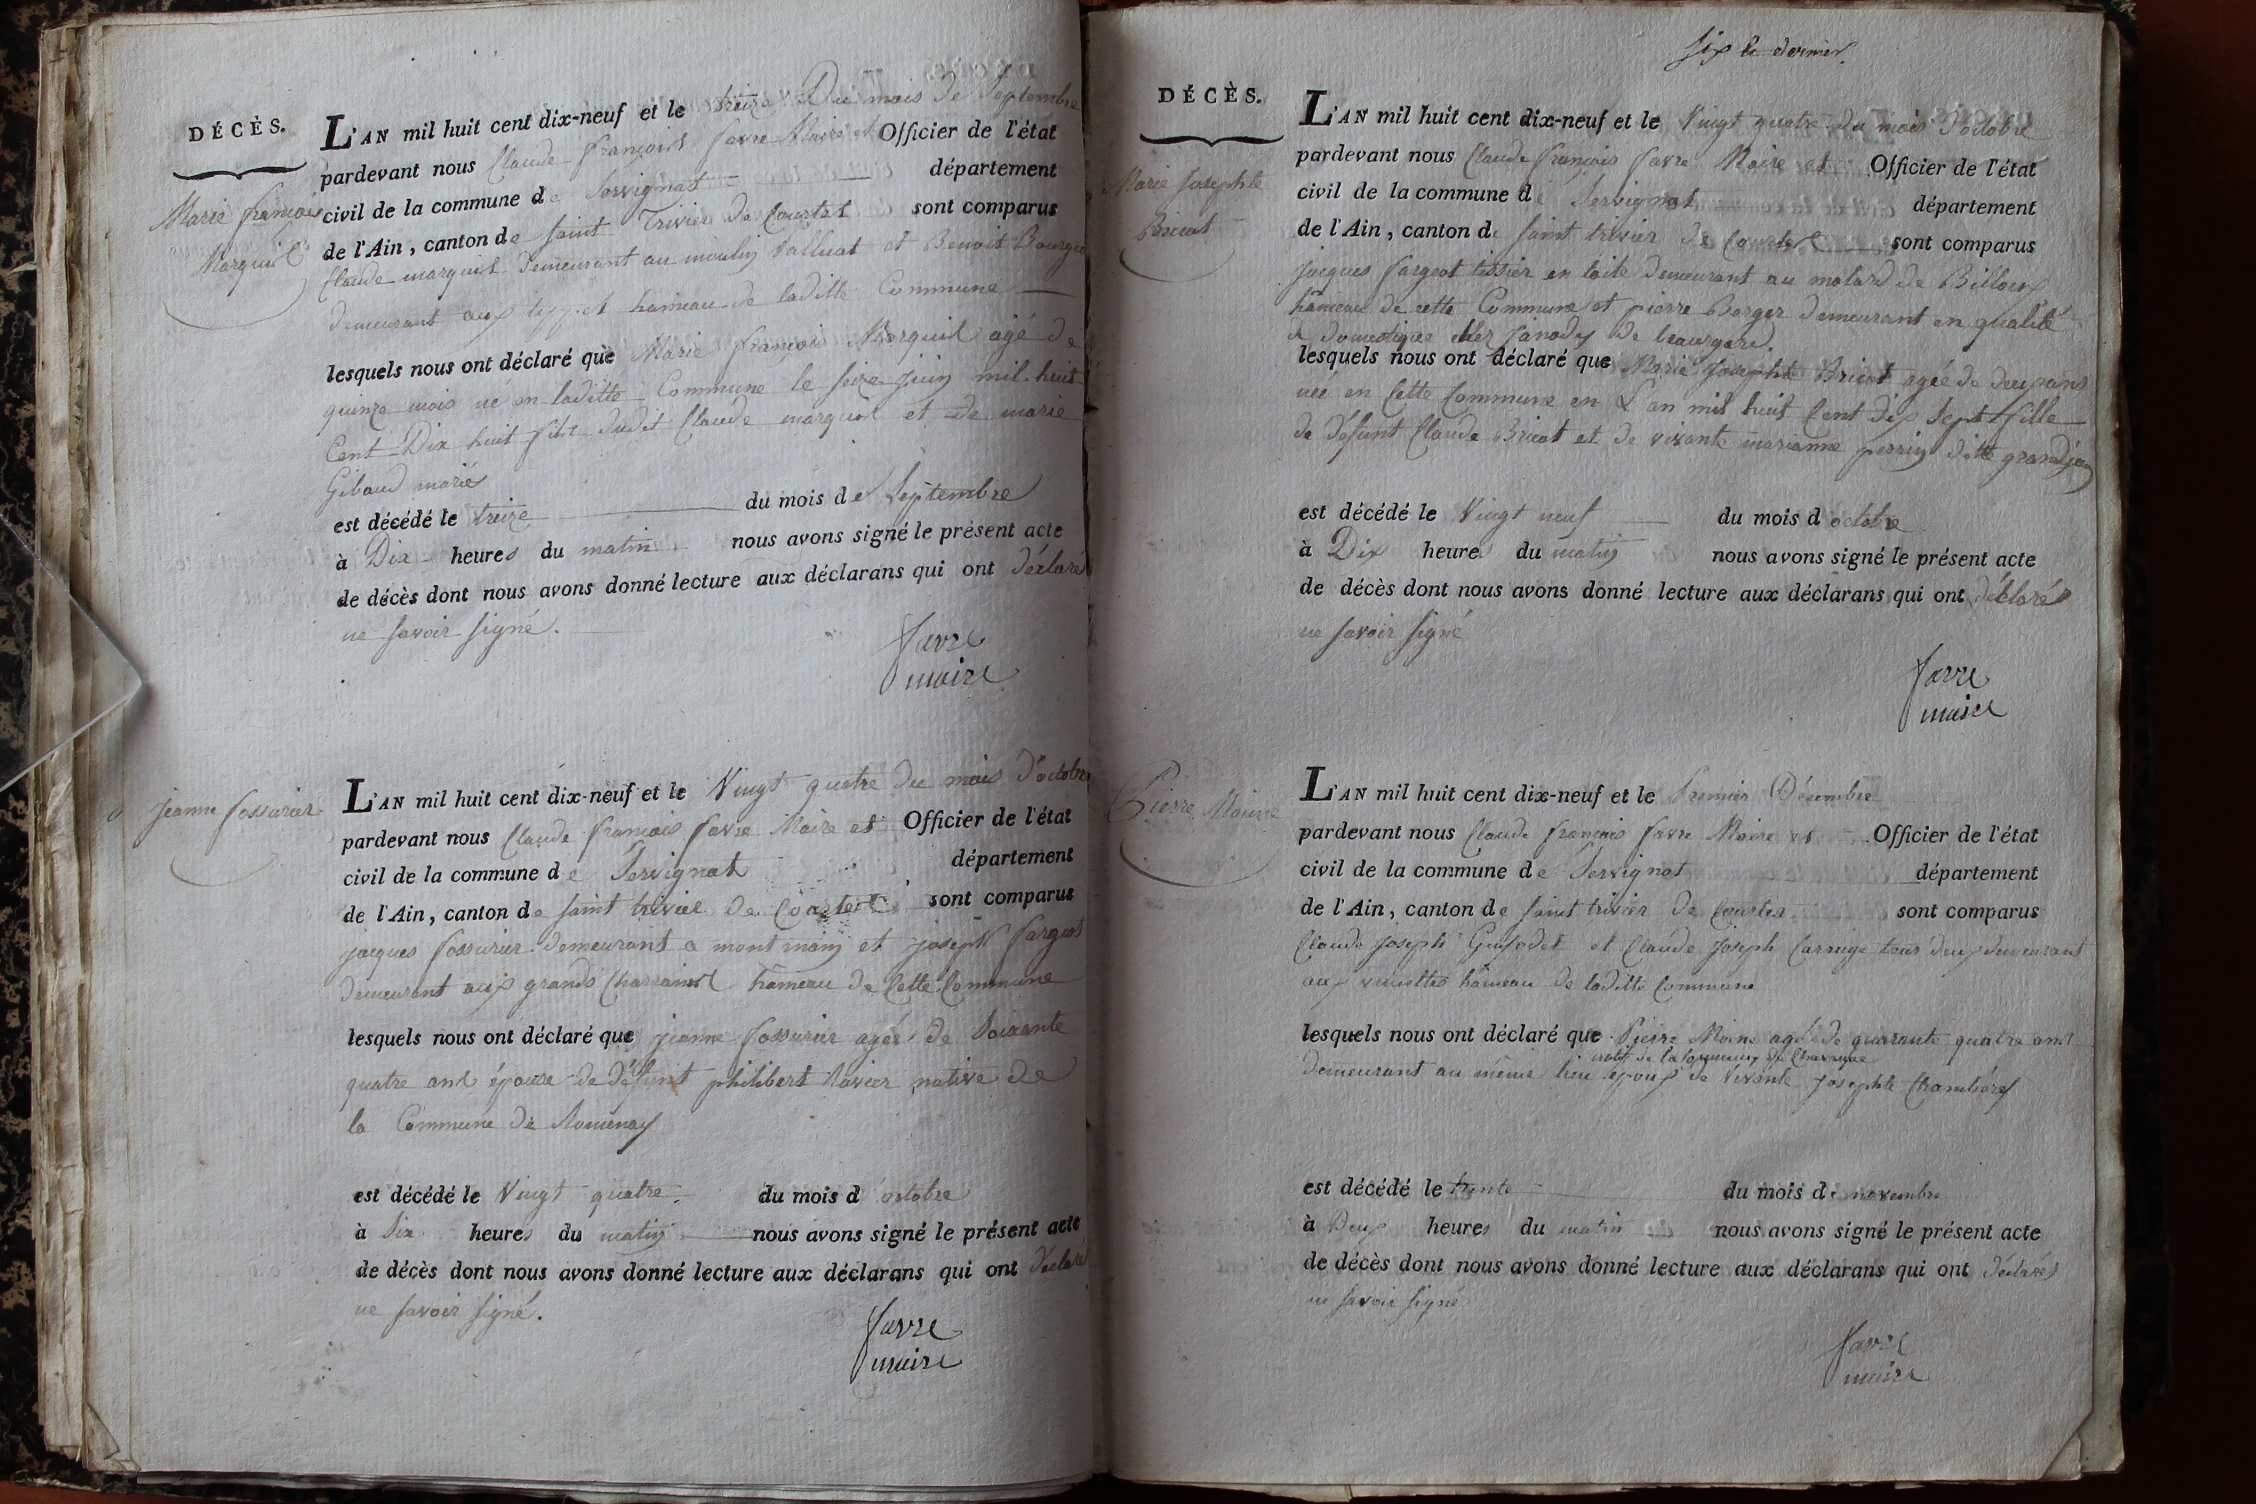 DÉCÈS.
Marie françois
Marquis
L'AN mil huit cent dix-neuf et le treize Du mois de Septembre
pardevant nous Claude françois favre Maire et Officier de l'état
civil de la commune de Servignat département
de l'Ain, canton de Saint Trivier De Courtes sont comparus
Claude marquis Demeurant au moulin et Benoit
demeurant aux hameau de laditte Commune
lesquels nous ont déclaré que Marie françois Marquis agé de
quinze mois né en laditte Commune le seize juin mil huit
Cent Dix huit fils dudit Claude marquis et de marie
Gibaud mariés
est décédé le treize du mois de Septembre
à Dix heures du matin nous avons signé le présent acte
de décès dont nous avons donné lecture aux déclarans qui ont déclaré
ne savoir signé.
favre
maire
jeanne fossurier
L'AN mil huit cent dix-neuf et le Vingt quatre du mois d'octobre
pardevant nous Claude françois favre Maire et Officier de l'état
civil de la commune de Servignat département
de l'Ain, canton de saint trivier de Courtes sont comparus
jacques fossurier demeurant a montmain et joseph fargeot
demeurant aux grands hameau de Cette Commune
lesquels nous ont déclaré que jeanne fossurier agée de Soixante
quatre ans épouse de défunt philibert native de
la Commune de Romenay
est décédé le Vingt quatre du mois d octobre
à Six heures du matin nous avons signé le présent acte
de décès dont nous avons donné lecture aux déclarans qui ont déclaré
ne savoir signé.
favre
maire
six le dernier.
DÉCÈS.
Marie Josephte
Bricat
L'AN mil huit cent dix-neuf et le Vingt quatre du mois d'octobre
pardevant nous Claude françois favre Maire et Officier de l'état
civil de la commune de Servignat département
de l'Ain, canton de saint trivier de Courtes sont comparus
jacques fargeot tissier en toile demeurant au molard de
hameau de cette Commune et pierre Berger demeurant en qualité
de domestique chez janody de beauregard.
lesquels nous ont déclaré que Marie Josephte Bricat agée de deux ans
née en Cette Commune en L'an mil huit Cent dix Sept fille
de défunt Claude Bricat et de vivante marianne perrin ditte grandjean
est décédé le Vingt neuf du mois d octobre
à Dix heures du matin nous avons signé le présent acte
de décès dont nous avons donné lecture aux déclarans qui ont déclarés
ne savoir signé
favre
maire
Pierre Moine
L'AN mil huit cent dix-neuf et le Premier Décembre
pardevant nous Claude françois favre Maire et Officier de l'état
civil de la commune de Servignat département
de l'Ain, canton de saint trivier de Courtes sont comparus
Claude Joseph et Claude Joseph tous deux demeurant
aux hameau de laditte Commune
lesquels nous ont déclaré que Pierre Moine agé de quarante quatre ans
natif de la commune de
demeurant au même lieu epoux de Vivante Josephte
est décédé le trente du mois de novembre
à Deux heures du matin nous avons signé le présent acte
de décès dont nous avons donné lecture aux déclarans qui ont déclarés
ne savoir signé
favre
maire